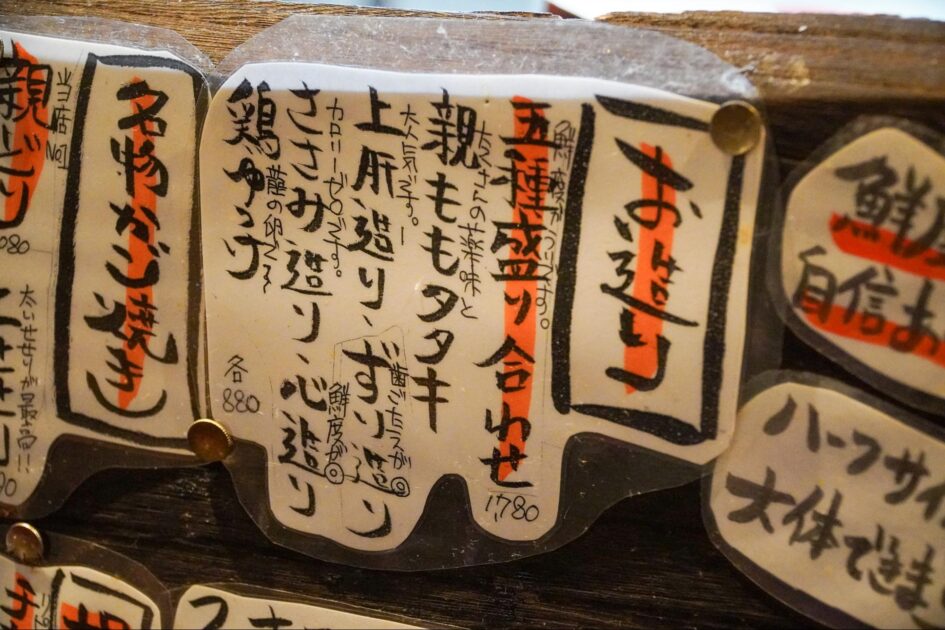 お造り
鮮度がウリです。
五種盛り合わせ
1,780
たくさんの薬味と
親ももタタキ
大人気です。
歯ごたえが◎
上肝造り・ずり造り
カロリーゼロです。
鮮度が◎
ささみ造り・心造り
鶏ゆっけ
龍の卵で〜
各880
名物かご焼き
当店No1
親
ハーフサイ
大体できま
鮮度
自信あ